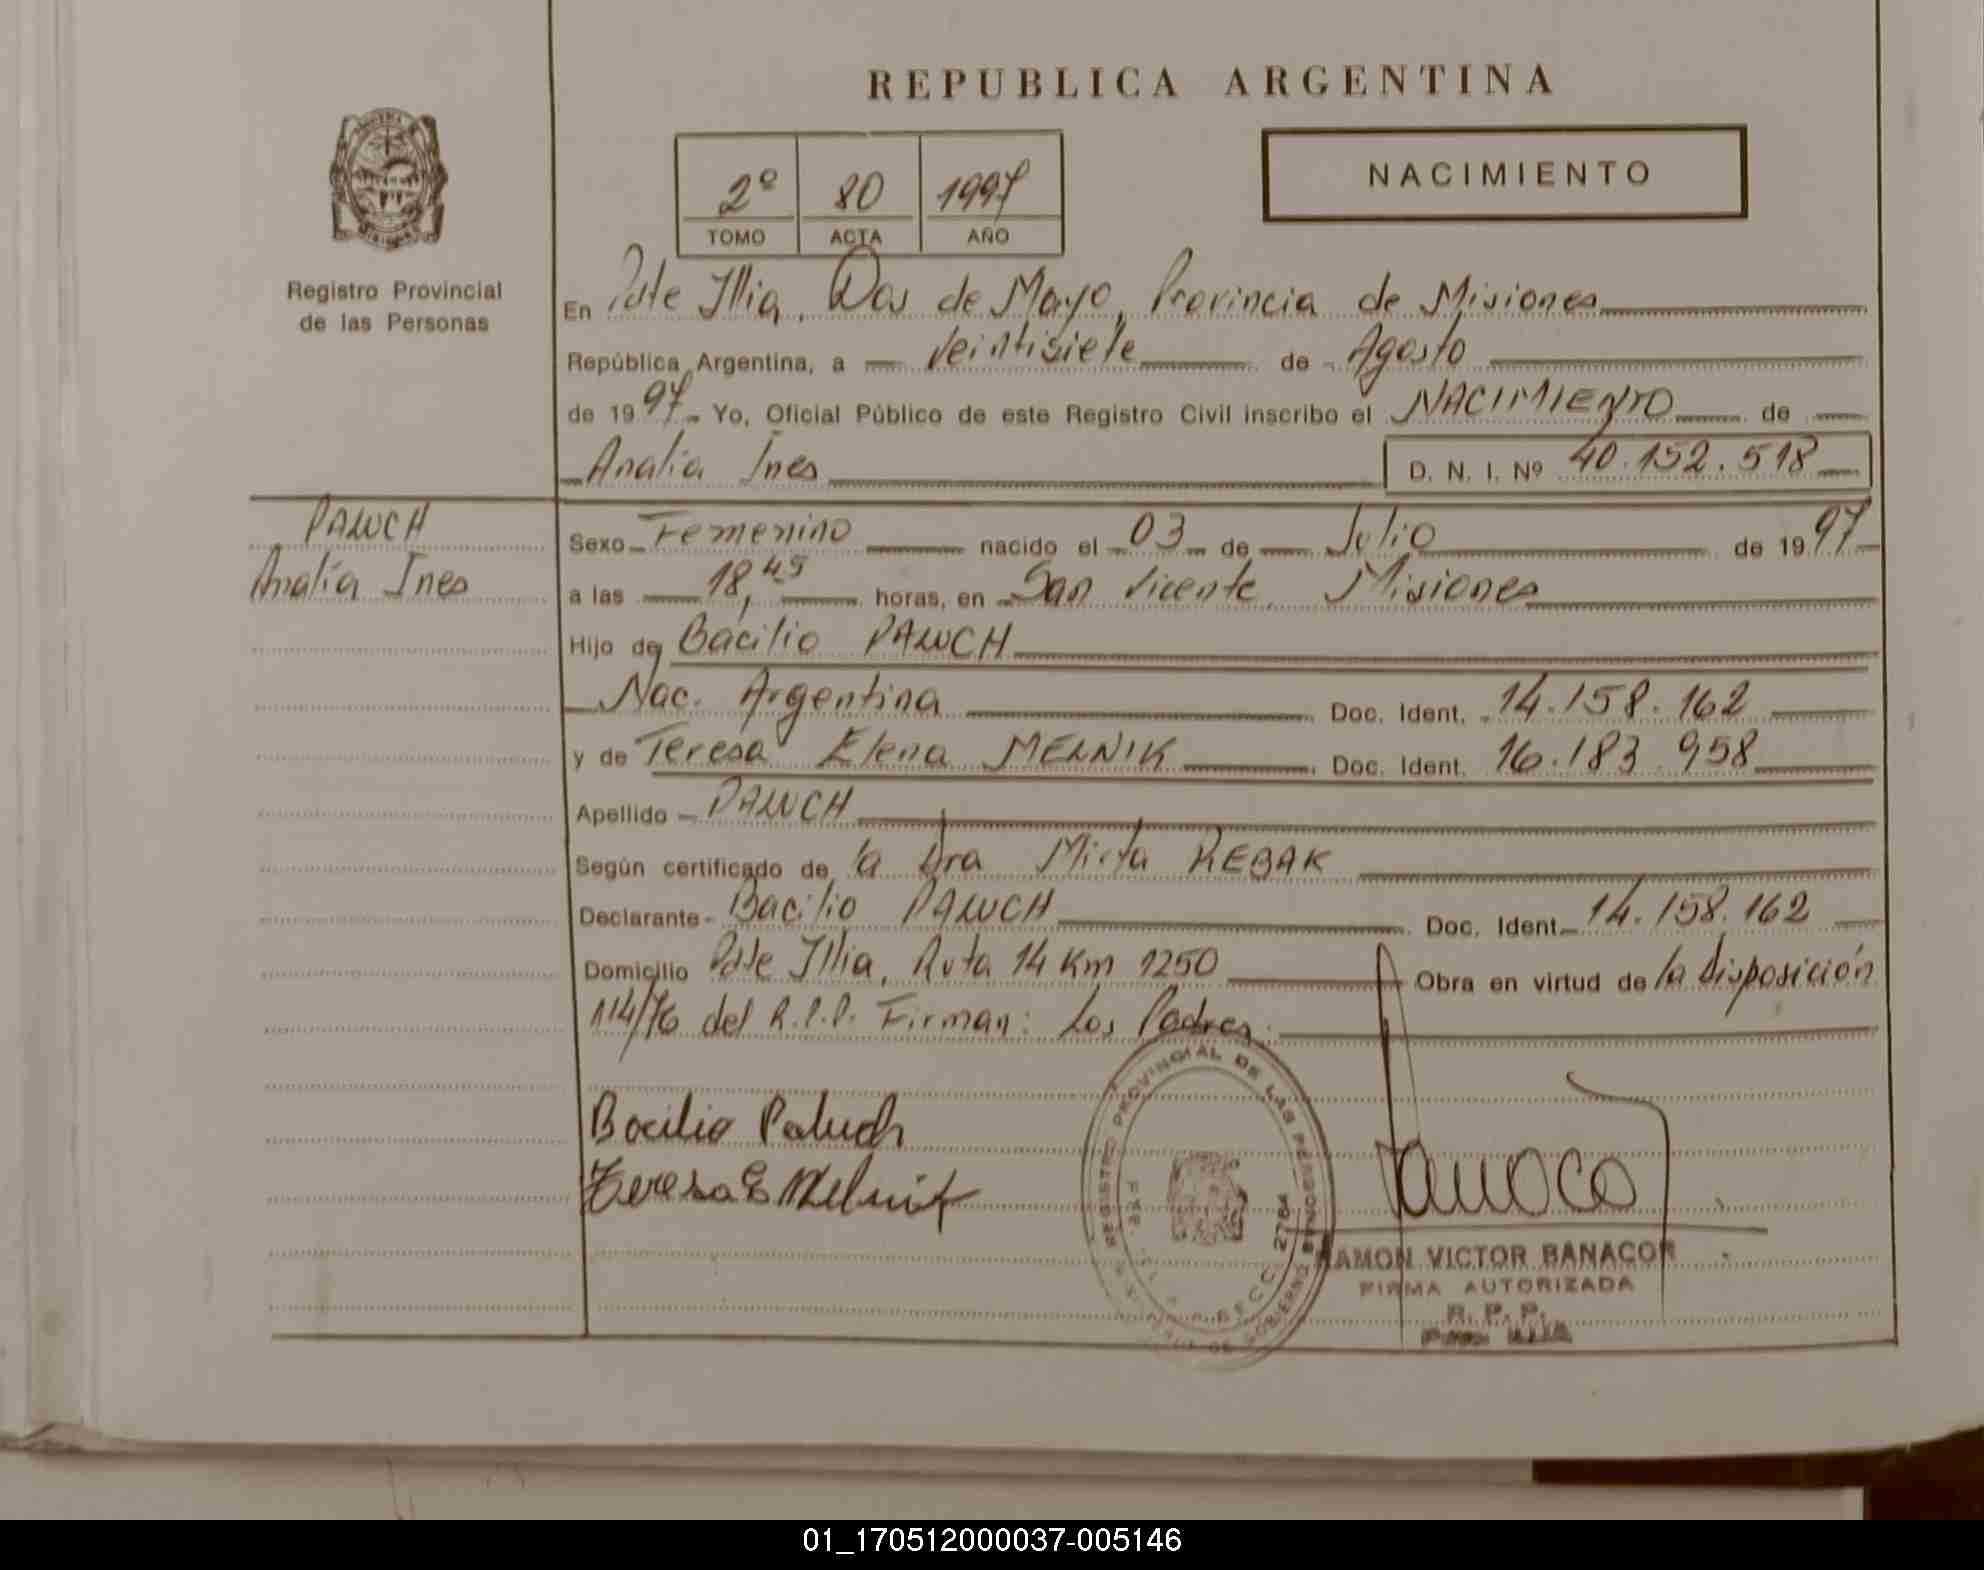 REPUBLICA ARGENTINA
NACIMIENTO
2º 80 1997
TOMO ACTA AÑO
Registro Provincial
de las Personas
En Pdte Illia, Dos de Mayo, Provincia de Misiones
República Argentina, a veintisiete de Agosto
de 1997 Yo, Oficial Público de este Registro Civil inscribo el NACIMIENTO de
Analía Ines D. N. I. Nº 40.152.518
PALUCH
Analía Ines
Sexo Femenino nacido el 03 de Julio de 1997
a las 18,45 horas, en San Vicente, Misiones
Hijo de Bacilio PALUCH
Nac. Argentina Doc. Ident. 14.158.162
y de Teresa Elena MELNIK Doc. Ident. 16.183.958
Apellido PALUCH
Según certificado de la Dra Mirta REBAK
Declarante Bacilio PALUCH Doc. Ident. 14.158.162
Domicilio Pdte Illia, Ruta 14 Km 1250 Obra en virtud de la disposición
114/76 del R.P.P. Firman: Los Padres.
Bacilio Paluch
Teresa E Melnik
REGISTRO PROVINCIAL DE LAS PERSONAS
2764
RAMON VICTOR BANACOR
FIRMA AUTORIZADA
R. P. P.
01_170512000037-005146